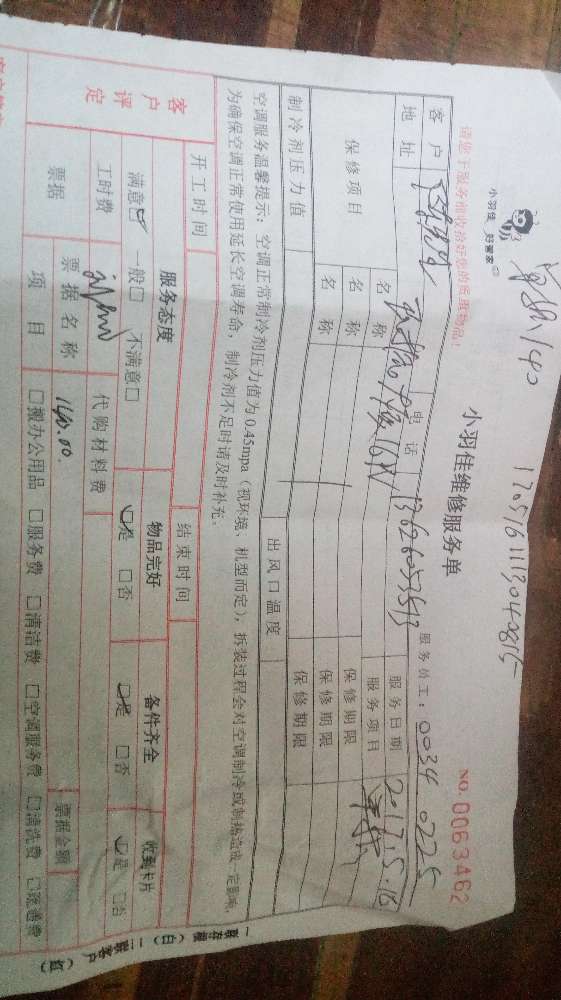 1205161113040815
140
小羽佳 好管家
小羽佳维修服务单
NO. 0063462
请您于服务前收拾好您的贵重物品!
服务员工: 0034 0225
客户
电话
服务日期 2017.5.16
地址
服务项目
保修项目 名称 保修期限
名称 保修期限
名称 保修期限
制冷剂压力值 出风口温度
空调服务温馨提示: 空调正常制冷剂压力值为0.45mpa(视环境、机型而定),拆装过程会对空调制冷或制热造成一定影响,
为确保空调正常使用延长空调寿命,制冷剂不足时请及时补充。
开工时间 结束时间
客户评定 服务态度 物品完好 备件齐全 收到卡片
满意☑ 一般□ 不满意□ ☑是 □否 ☑是 □否 ☑是 □否
工时费 代购材料费
票据 票据名称 140.00. 票据金额
项目 □搬办公用品 □服务费 □清洁费 □空调服务费 □清洗费 □疏通费
一联存根(白) 二联客户(红)